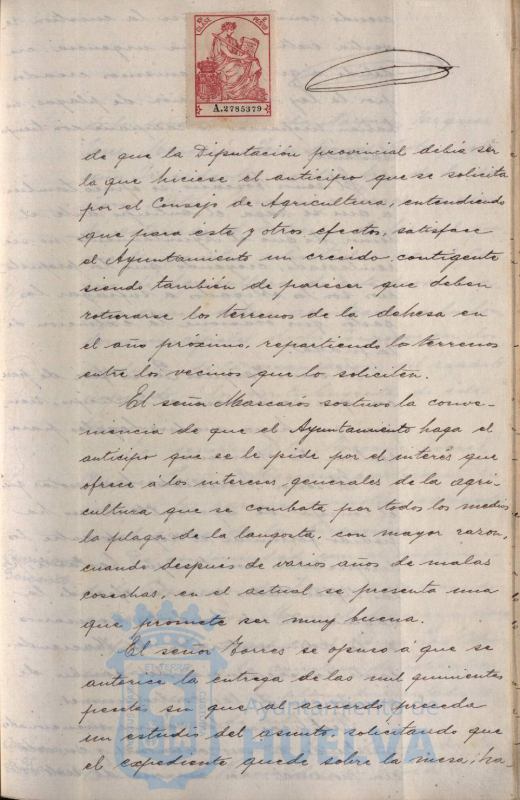 A.2785379
de que la Diputación provincial debía ser
la que hiciese el anticipo que se solicita
por el Consejo de Agricultura, entendiendo
que para este y otros efectos, satisface
el Ayuntamiento un crecido contigente
siendo también de parecer que deben
roturarse los terrenos de la dehesa en
el año próximo, repartiendo los terrenos
entre los vecinos que lo soliciten.
El señor Mascarós sostuvo la conve-
niencia de que el Ayuntamiento haga el
anticipo que se le pide por el interés que
ofrece á los intereses generales de la agri-
cultura que se combata por todos los medios
la plaga de la langosta, con mayor razon,
cuando después de varios años de malas
cosechas, en el actual se presenta una
que promete ser muy buena.
El señor Torres se opuso á que se
autorice la entrega de las mil quinientas
pesetas sin que al acuerdo preceda
un estudio del asunto, solicitando que
el expediente quede sobre la mesa; ha-
Ayuntamiento de
HUELVA